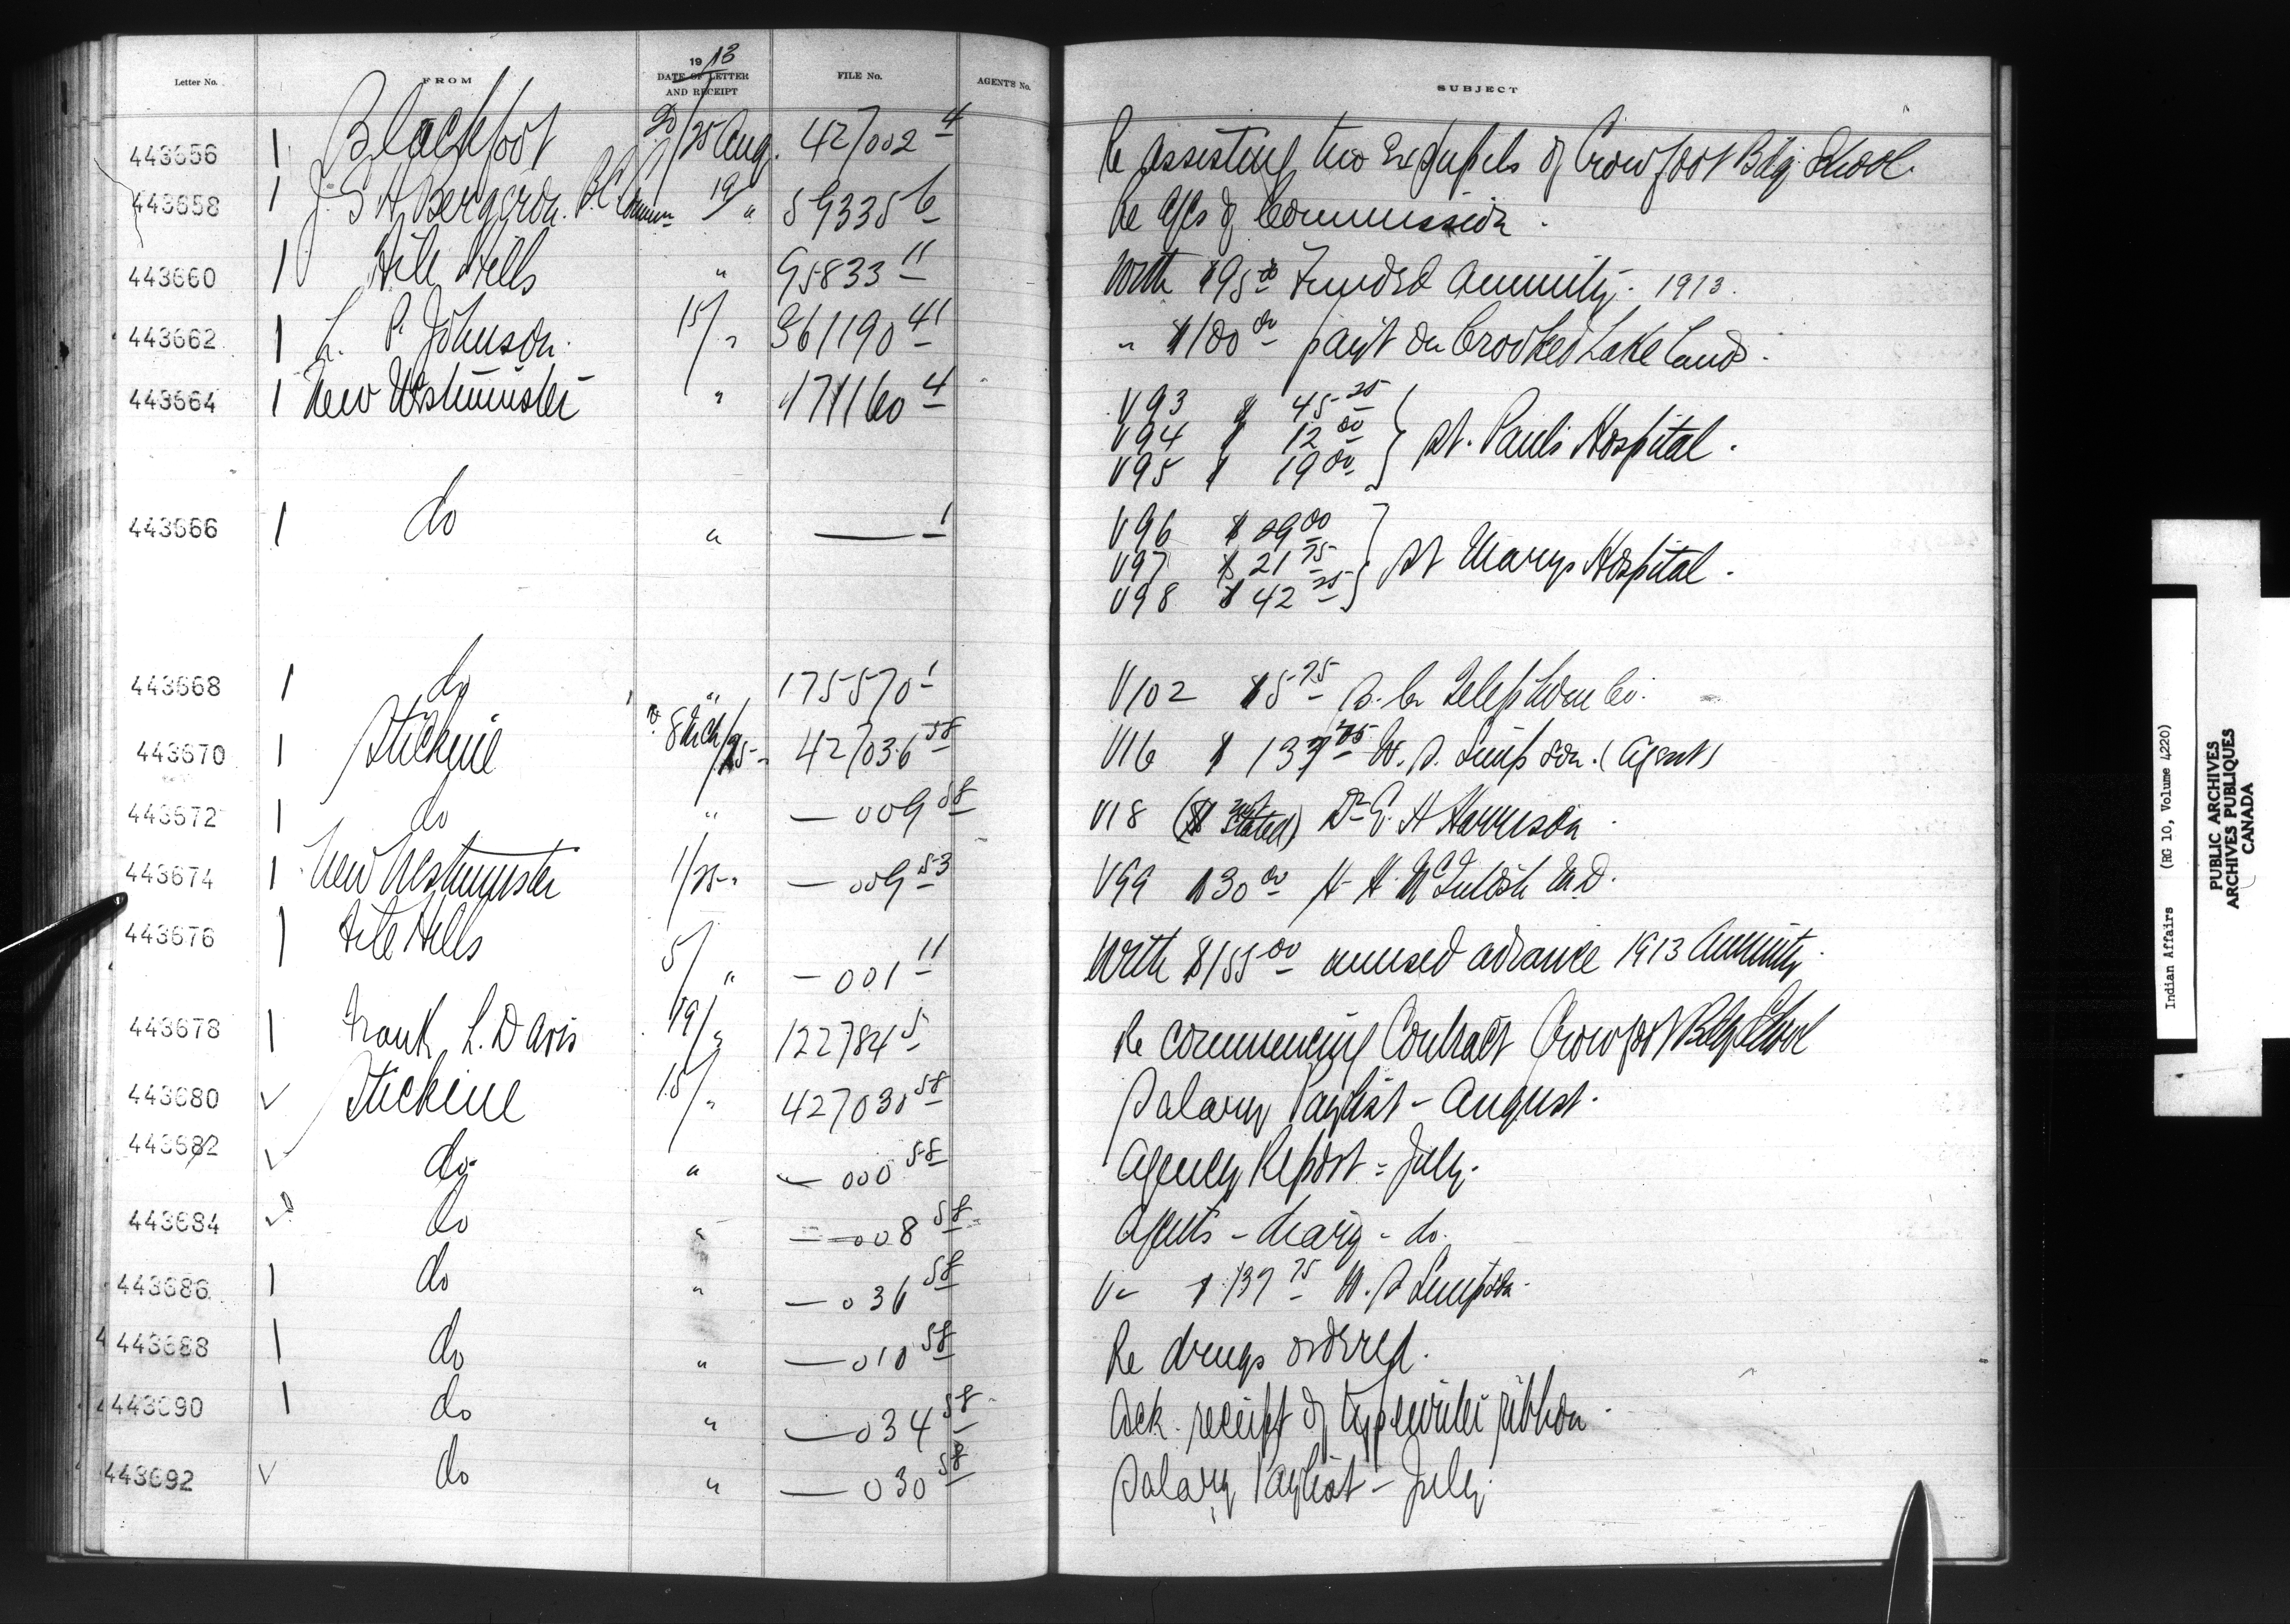 Letter No. FROM 1913 DATE OF LETTER AND RECEIPT FILE No. AGENT'S No. SUBJECT
443656 1 Blackfoot 20/25 Aug. 427002 4 Re assisting two Ex pupils of Crowfoot Bdg. School.
443658 1 J. G. H. Bergeron. B.C. Commn 19/ " 59335 6 Re a/cs of Commission.
443660 1 File Hills " 95833 11 With $95 00 Funded Annuity. 1913.
443662 1 L. P. Johnson. 15/ " 361190 41 " $100 00 paym't on Crooked Lake Land.
443664 1 New Westminster " 171160 4 V93 $ 45 25
V94 $ 12 00 } St. Paul's Hospital.
V95 $ 19 00
443666 1 do " — 1 V96 $ 29 00
V97 $ 21 75 } St Marys Hospital.
V98 $ 42 25
443668 1 do " 175570 1 V102 $5 75 B. C. Telephone Co.
443670 1 Stickine 8 Mch/25 " 427036 58 V16 $ 137 75 W. S. Simpson. (Agent)
443672 1 do " — 009 58 V18 ($ not stated) Dr E. H Harrison
443674 1 New Westminster 11/25 " — 009 53 V99 $30 00 H. H. McIntosh M.D.
443676 1 File Hills 5/ " — 001 11 With $155 00 unused advance 1913 Annuity.
443678 1 Frank L. Davis 19/ " 122784 5 Re commencing Contract Crowfoot Bdg School
443680 ✓ Stickine 15/ " 427030 58 Salary Paylist - August.
443682 ✓ do " — 000 58 Agency Report = July.
443684 ✓ do " — 008 58 Agents - diary - do.
443686 1 do " — 036 58 V - $ 139 75 W. S Simpson.
443688 1 do " — 010 58 Re drugs ordered.
443690 1 do " — 034 58 Ack. receipt of typewriter ribbon.
443692 ✓ do " — 030 58 Salary Paylist - July.
Indian Affairs (RG 10, Volume 4220)
PUBLIC ARCHIVES
ARCHIVES PUBLIQUES
CANADA